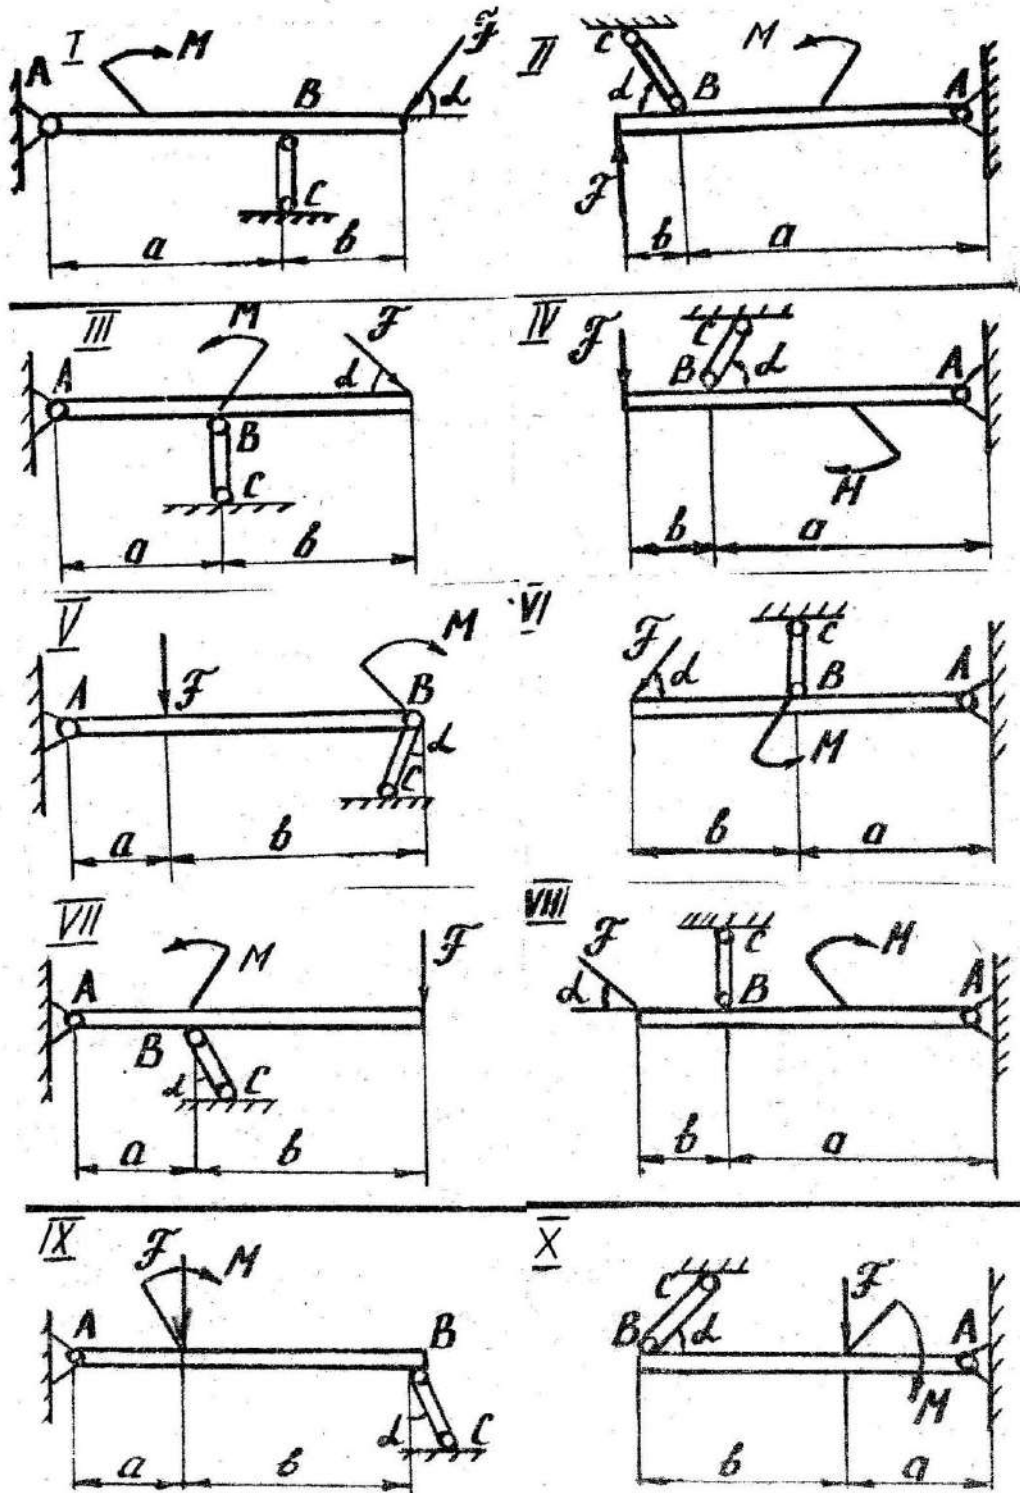 I A M B F α C a b
II C α B M A F b a
III A M F α B C a b
IV F C B α A M b a
V A F M B α C a b
VI F α C B A M b a
VII A M F B α C a b
VIII F α C B M A b a
IX A F M B α C a b
X C B α F A M b a